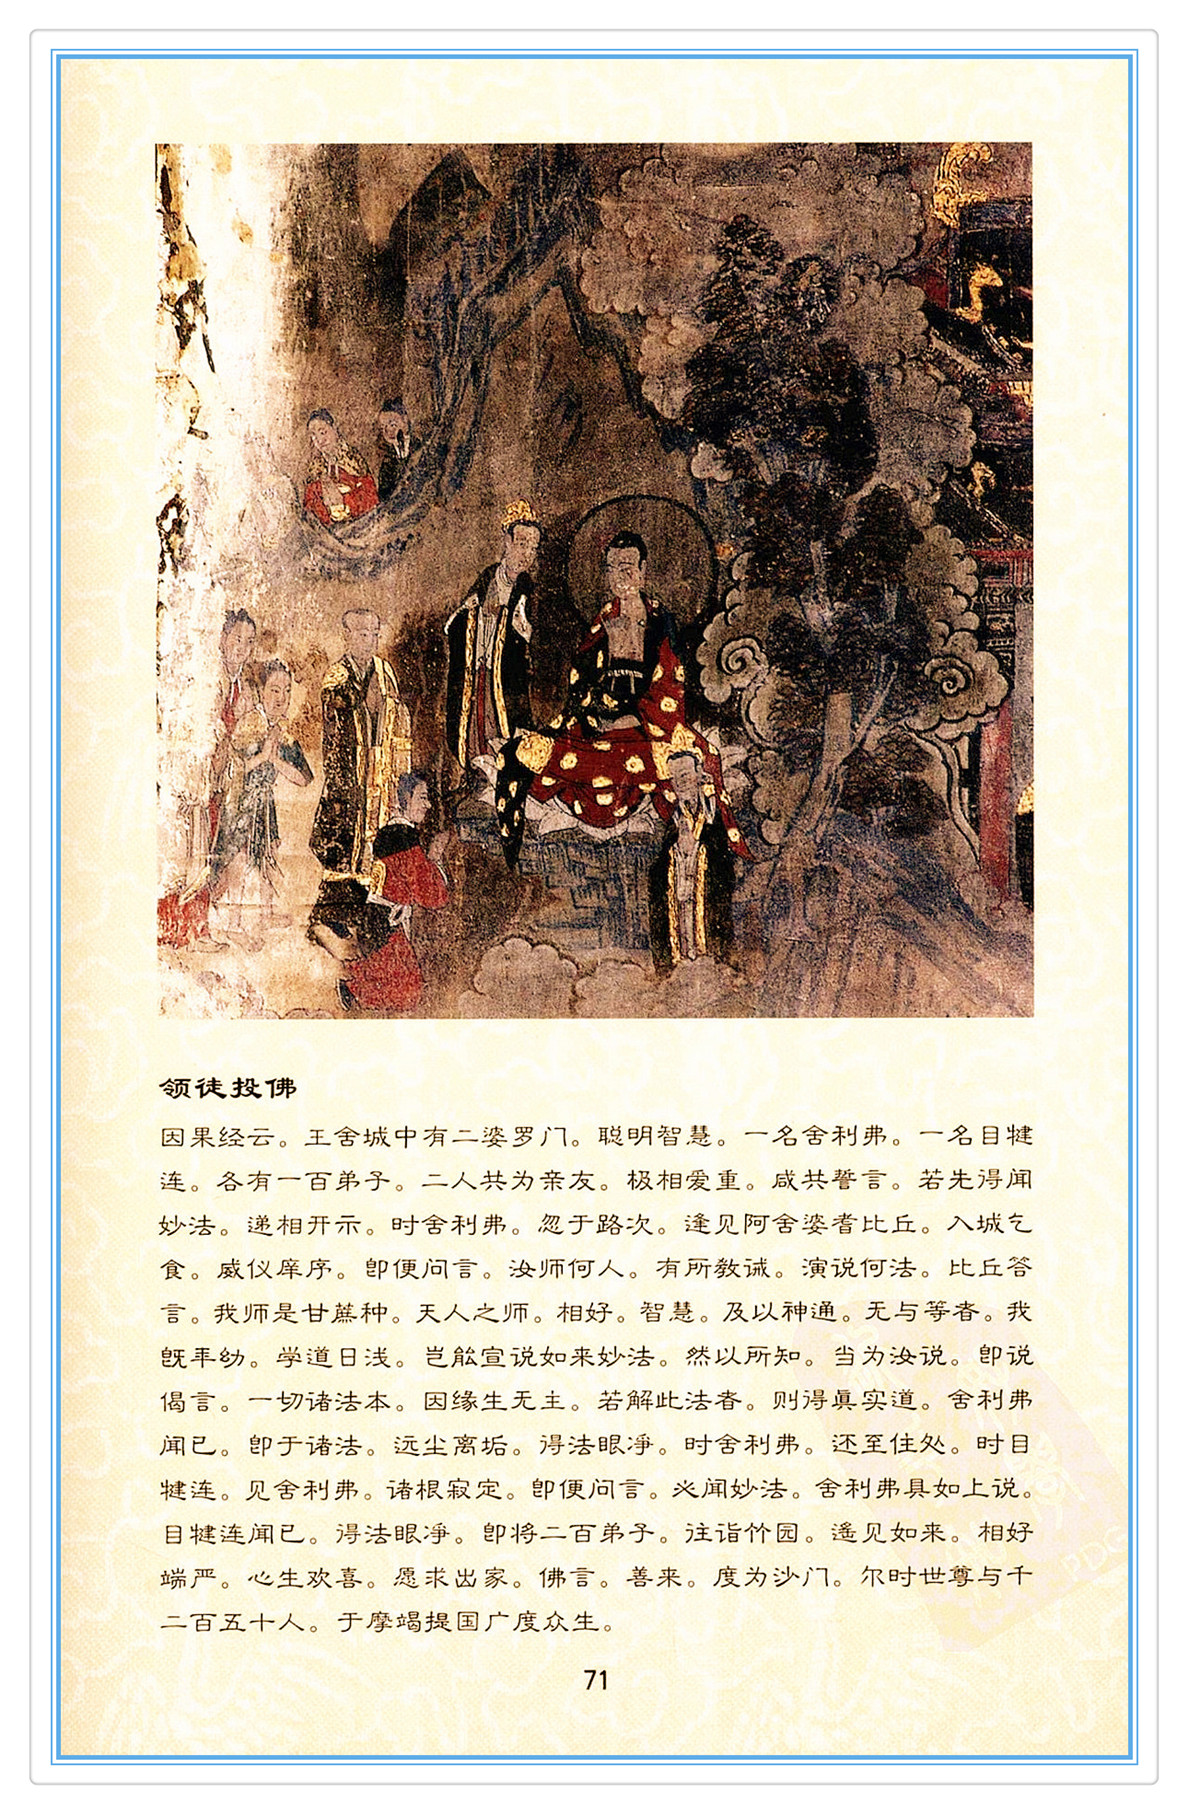 领徒投佛
因果经云。王舍城中有二婆罗门。聪明智慧。一名舍利弗。一名目犍
连。各有一百弟子。二人共为亲友。极相爱重。咸共誓言。若先得闻
妙法。递相开示。时舍利弗。忽于路次。逢见阿舍婆耆比丘。入城乞
食。威仪庠序。即便问言。汝师何人。有所教诫。演说何法。比丘答
言。我师是甘蔗种。天人之师。相好。智慧。及以神通。无与等者。我
既年幼。学道日浅。岂能宣说如来妙法。然以所知。当为汝说。即说
偈言。一切诸法本。因缘生无主。若解此法者。则得真实道。舍利弗
闻已。即于诸法。远尘离垢。得法眼净。时舍利弗。还至住处。时目
犍连。见舍利弗。诸根寂定。即便问言。必闻妙法。舍利弗具如上说。
目犍连闻已。得法眼净。即将二百弟子。往诣竹园。遥见如来。相好
端严。心生欢喜。愿求出家。佛言。善来。度为沙门。尔时世尊与千
二百五十人。于摩竭提国广度众生。
71